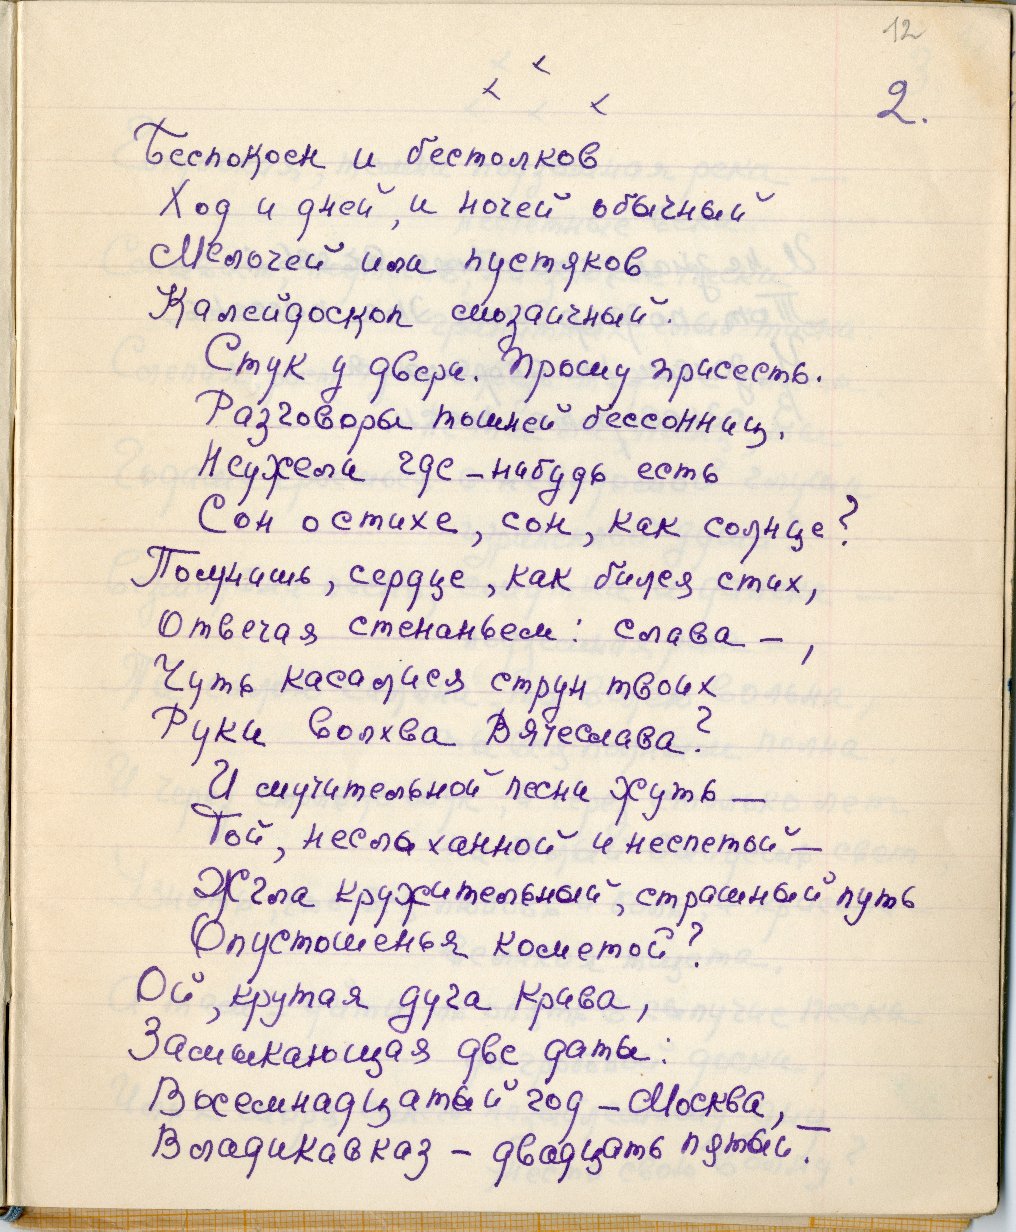 12
2.
x x x
Беспокоен и бестолков
Ход и дней, и ночей обычный
Мелочей или пустяков
Калейдоскоп мозаичный.
Стук у двери. Прошу присесть.
Разговоры тошней бессонниц.
Неужели где-нибудь есть
Сон о стихе, сон, как солнце?
Помнишь, сердце, как бился стих,
Отвечая стенаньем: слава –,
Чуть касалися струн твоих
Руки волхва Вячеслава?
И мучительной песни жуть —
Той, неслыханной и неспетой —
Жгла кружительный, страшный путь
Опустошенья кометой?
Ой, крутая дуга крива,
Замыкающая две даты:
Восемнадцатый год – Москва,
Владикавказ – двадцать пятый! –